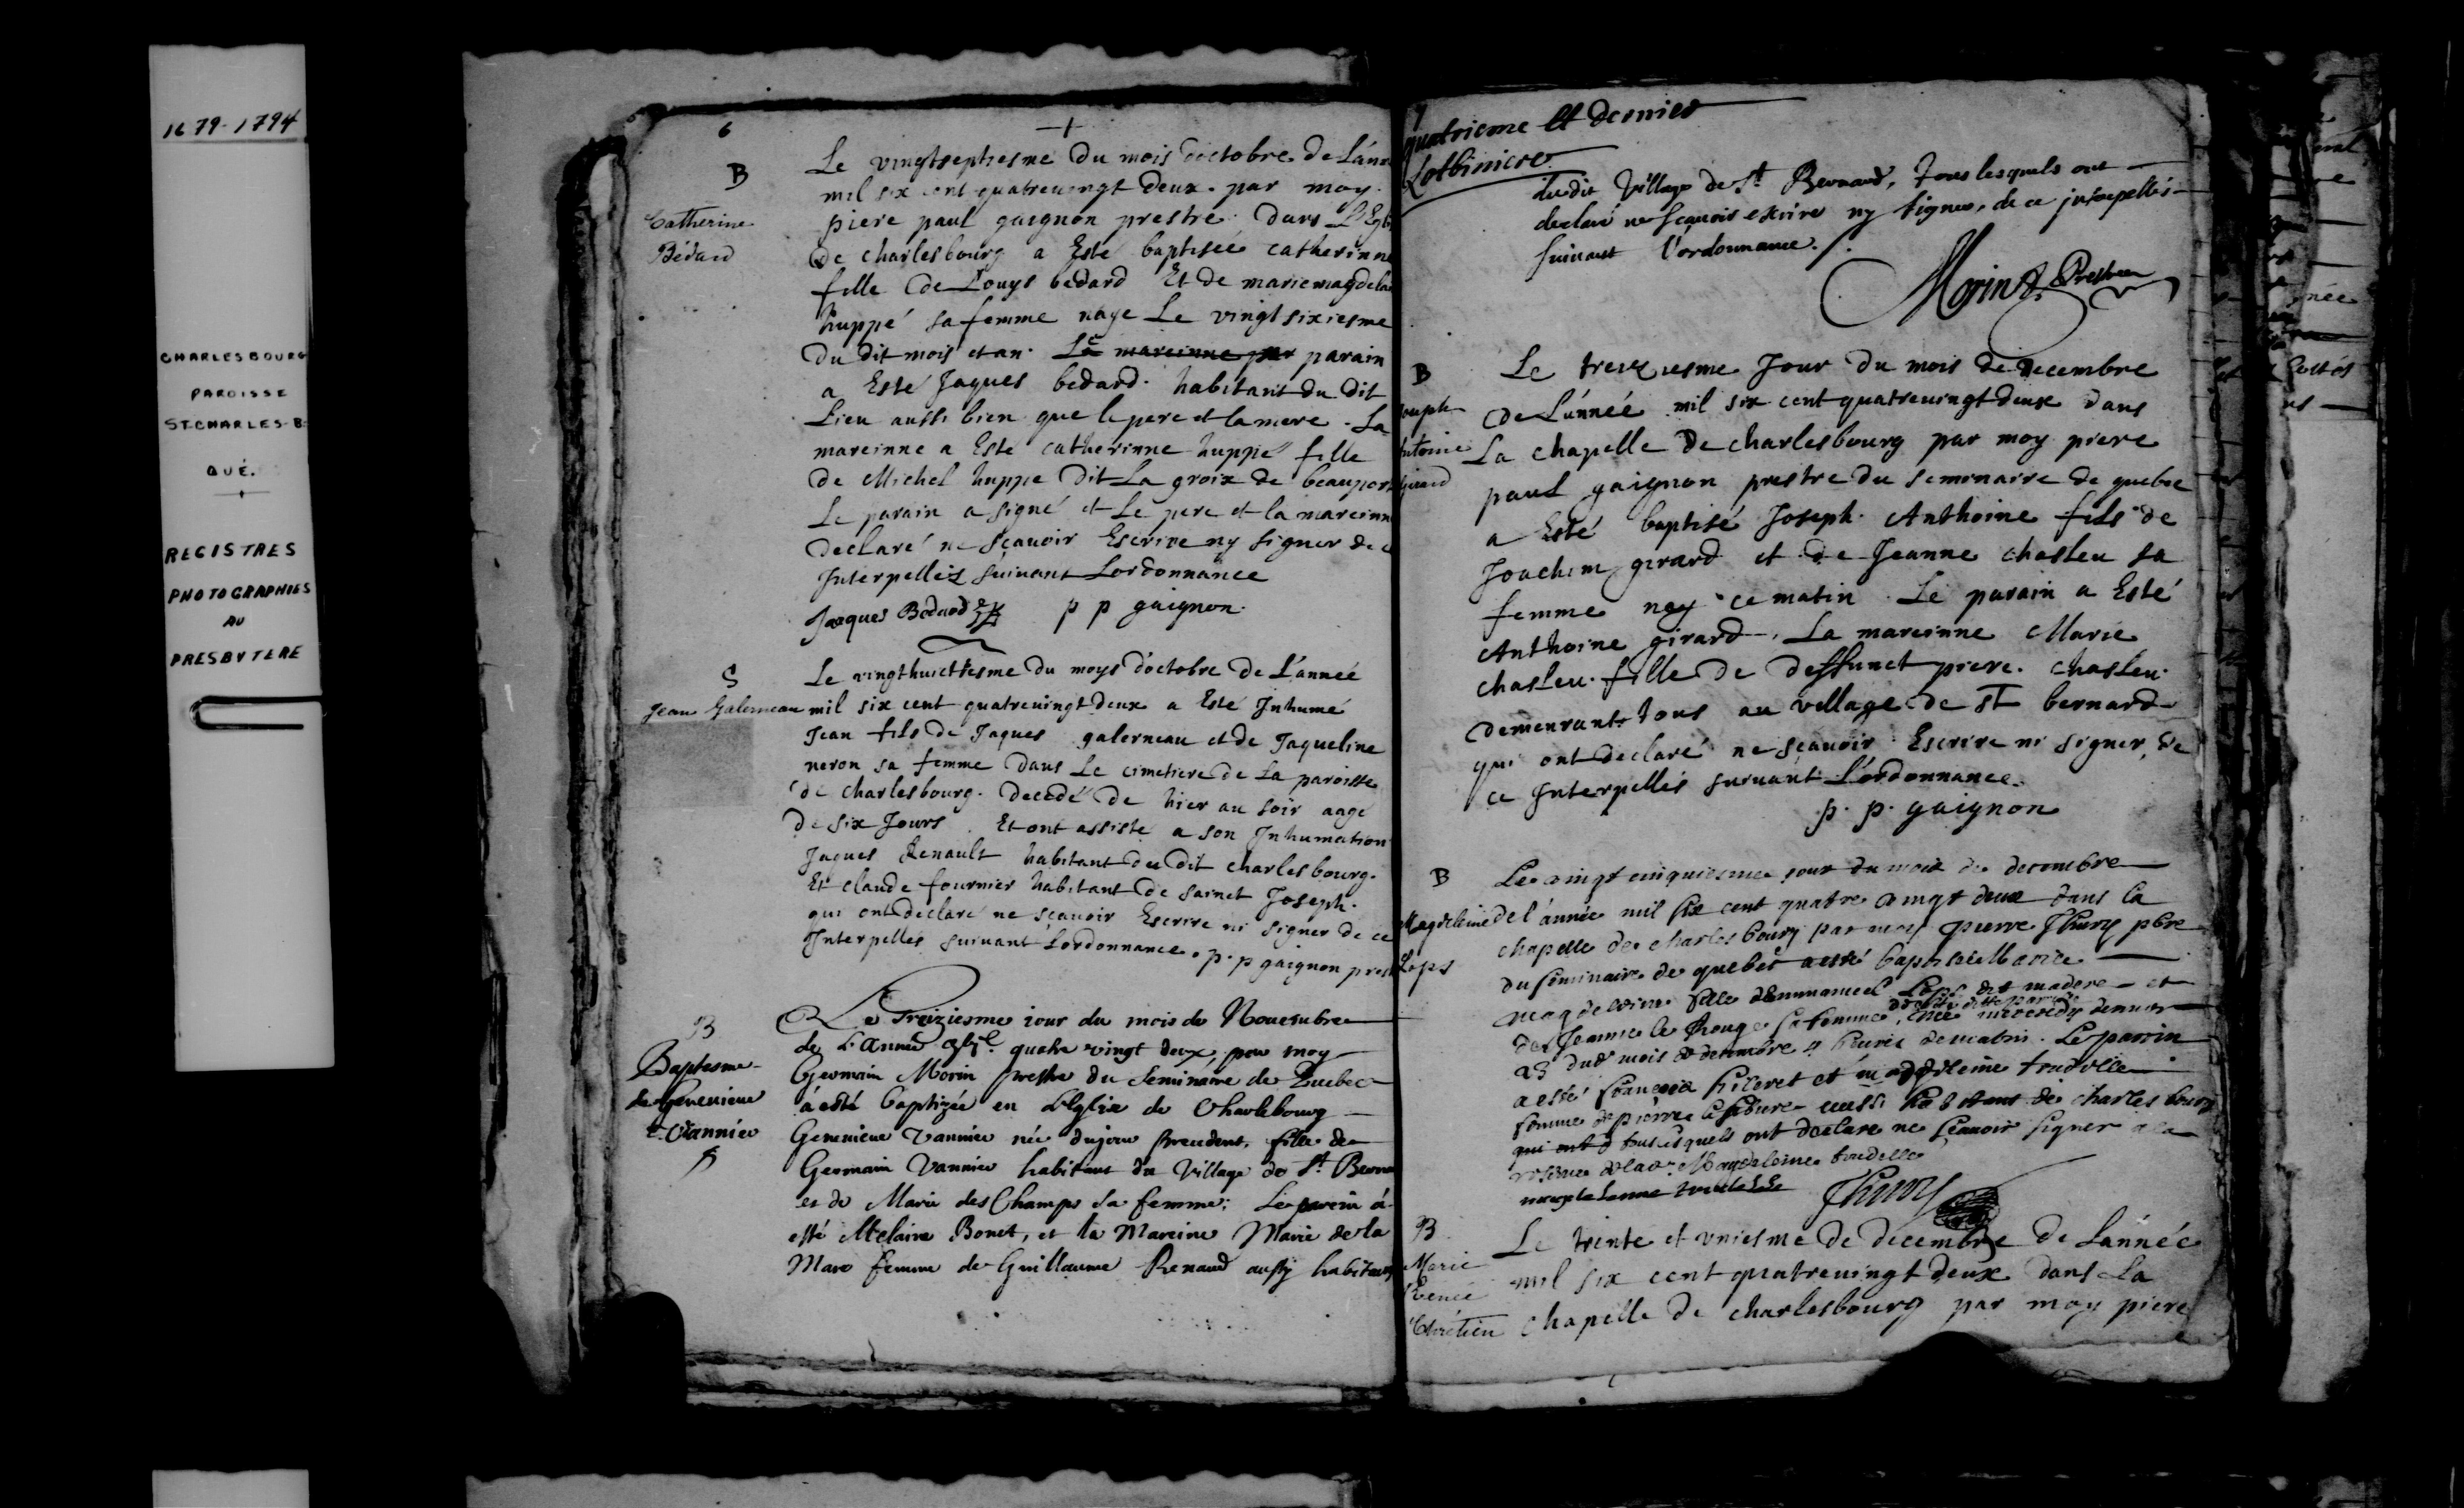 1679-1794
CHARLESBOURG
PAROISSE
ST-CHARLES-B.
QUÉ.
REGISTRES
PHOTOGRAPHIES
AU
PRESBYTERE
6
B
Catherine
Bédard
Le vingtseptiesme du mois doctobre de L'ann
mil six cent quatrevingt deux. par moy
piere paul gaignon prestre. dans L'Egli
de charlesbourg a Esté baptisée catherinne
fille de Louys bedard Et de mariemagdela
huppé sa femme naye Le vingt sixiesme
du dit mois et an. La mareinne par parain
a Esté Jaques bedard. habitant du dit
Lieu aussi bien que le pere et la mere. La
mareinne a Esté catherinne huppé fille
de Michel huppe dit La groix de beauport
Le parain a signé et Le pere et la mareinn
declaré ne sçavoir Escrire ny signer de c
Interpellez suivant Lordonnance
Jacques Bedard p p gaignon.
S
Jean Galerneau
Le vingthuictiesme du moys d'octobre de L'année
mil six cent quatrevingt deux a Esté Inhumé
Jean fils de Jaques galerneau et de Jaqueline
neron sa femme dans Le cimetiere de La paroisse
de charlesbourg. decedé de hier au soir aagé
de six Jours. Et ont assisté a son Inhumation
Jaques Renault habitant du dit charlesbourg.
Et claude fournier habitant de sainct Joseph.
qui ont declaré ne sçavoir Escrire ni signer de ce
Interpellés suivant Lordonnance. p. p gaignon prest
B
Baptesme
de Genevieve
Vannier
Le Treiziesme iour du mois de Novembre
de L'année quatre vingt deux, par moy
Germain Morin prestre du Seminaire de Quebec
à esté baptizée en L'Eglise de Charlebourg
Genevieve Vannier née du jour precedent, fille de
Germain Vannier habitant du Village de St. Berna
et de Marie des Champs sa femme; Le parein à
esté Melaine Bonet, et la Mareine Marie de la
Mare femme de Guillaume Renaud aussy habitans
7
quatrieme et dernier
Lotbiniere
dudit Village de St. Bernard, tous lesquels ont
declaré ne sçavoir escrire ny signer, de ce interpellés
suivant l'ordonnance./.
Morin Prestre
B
Joseph
Antoine
Girard
Le treiziesme Jour du mois de decembre
de L'année mil six cent quatrevingt deux dans
La chapelle de charlesbourg par moy piere
paul gaignon prestre du seminaire de quebec
a Esté baptisé Joseph Anthoine fils de
Joachim girard et de Jeanne chasleu sa
femme nay ce matin. Le parain a Esté
Anthoine girard. La mareinne Marie
chasleu. fille de deffunct piere. chasleu.
demeurants tous au village de St bernard
qui ont declaré ne sçavoir Escrire ni signer, de
ce Interpellés suivant L'ordonnance.
p. p. gaignon
B
Magdeleine
Lops
Le vingt cinquiesme jour du mois de decembre
de l'année mil six cent quatre vingt deux dans la
chapelle de charles bourg par moy pierre Thury pbre
du seminaire de quebec a esté baptisée Marie
magdeleine fille d'Emmanuel Lops dit madere et
de Jeanne le Rouge sa femme, née mercredy dernier
de cette ditte paroisse
23 dud. mois de decembre a heures de matin. Le parrin
a esté François et magdeleine trudelle
femme de pierre le febure aussi habitans de charles bourg
qui ont tous lesquels ont declaré ne sçavoir signer a la
reserve de lad. Magdeleine trudelle
Thury
B
Marie
Renée
Chrétien
Le trente et vniesme de decembre de L'année
mil six cent quatrevingt deux dans La
chapelle de charlesbourg par moy piere